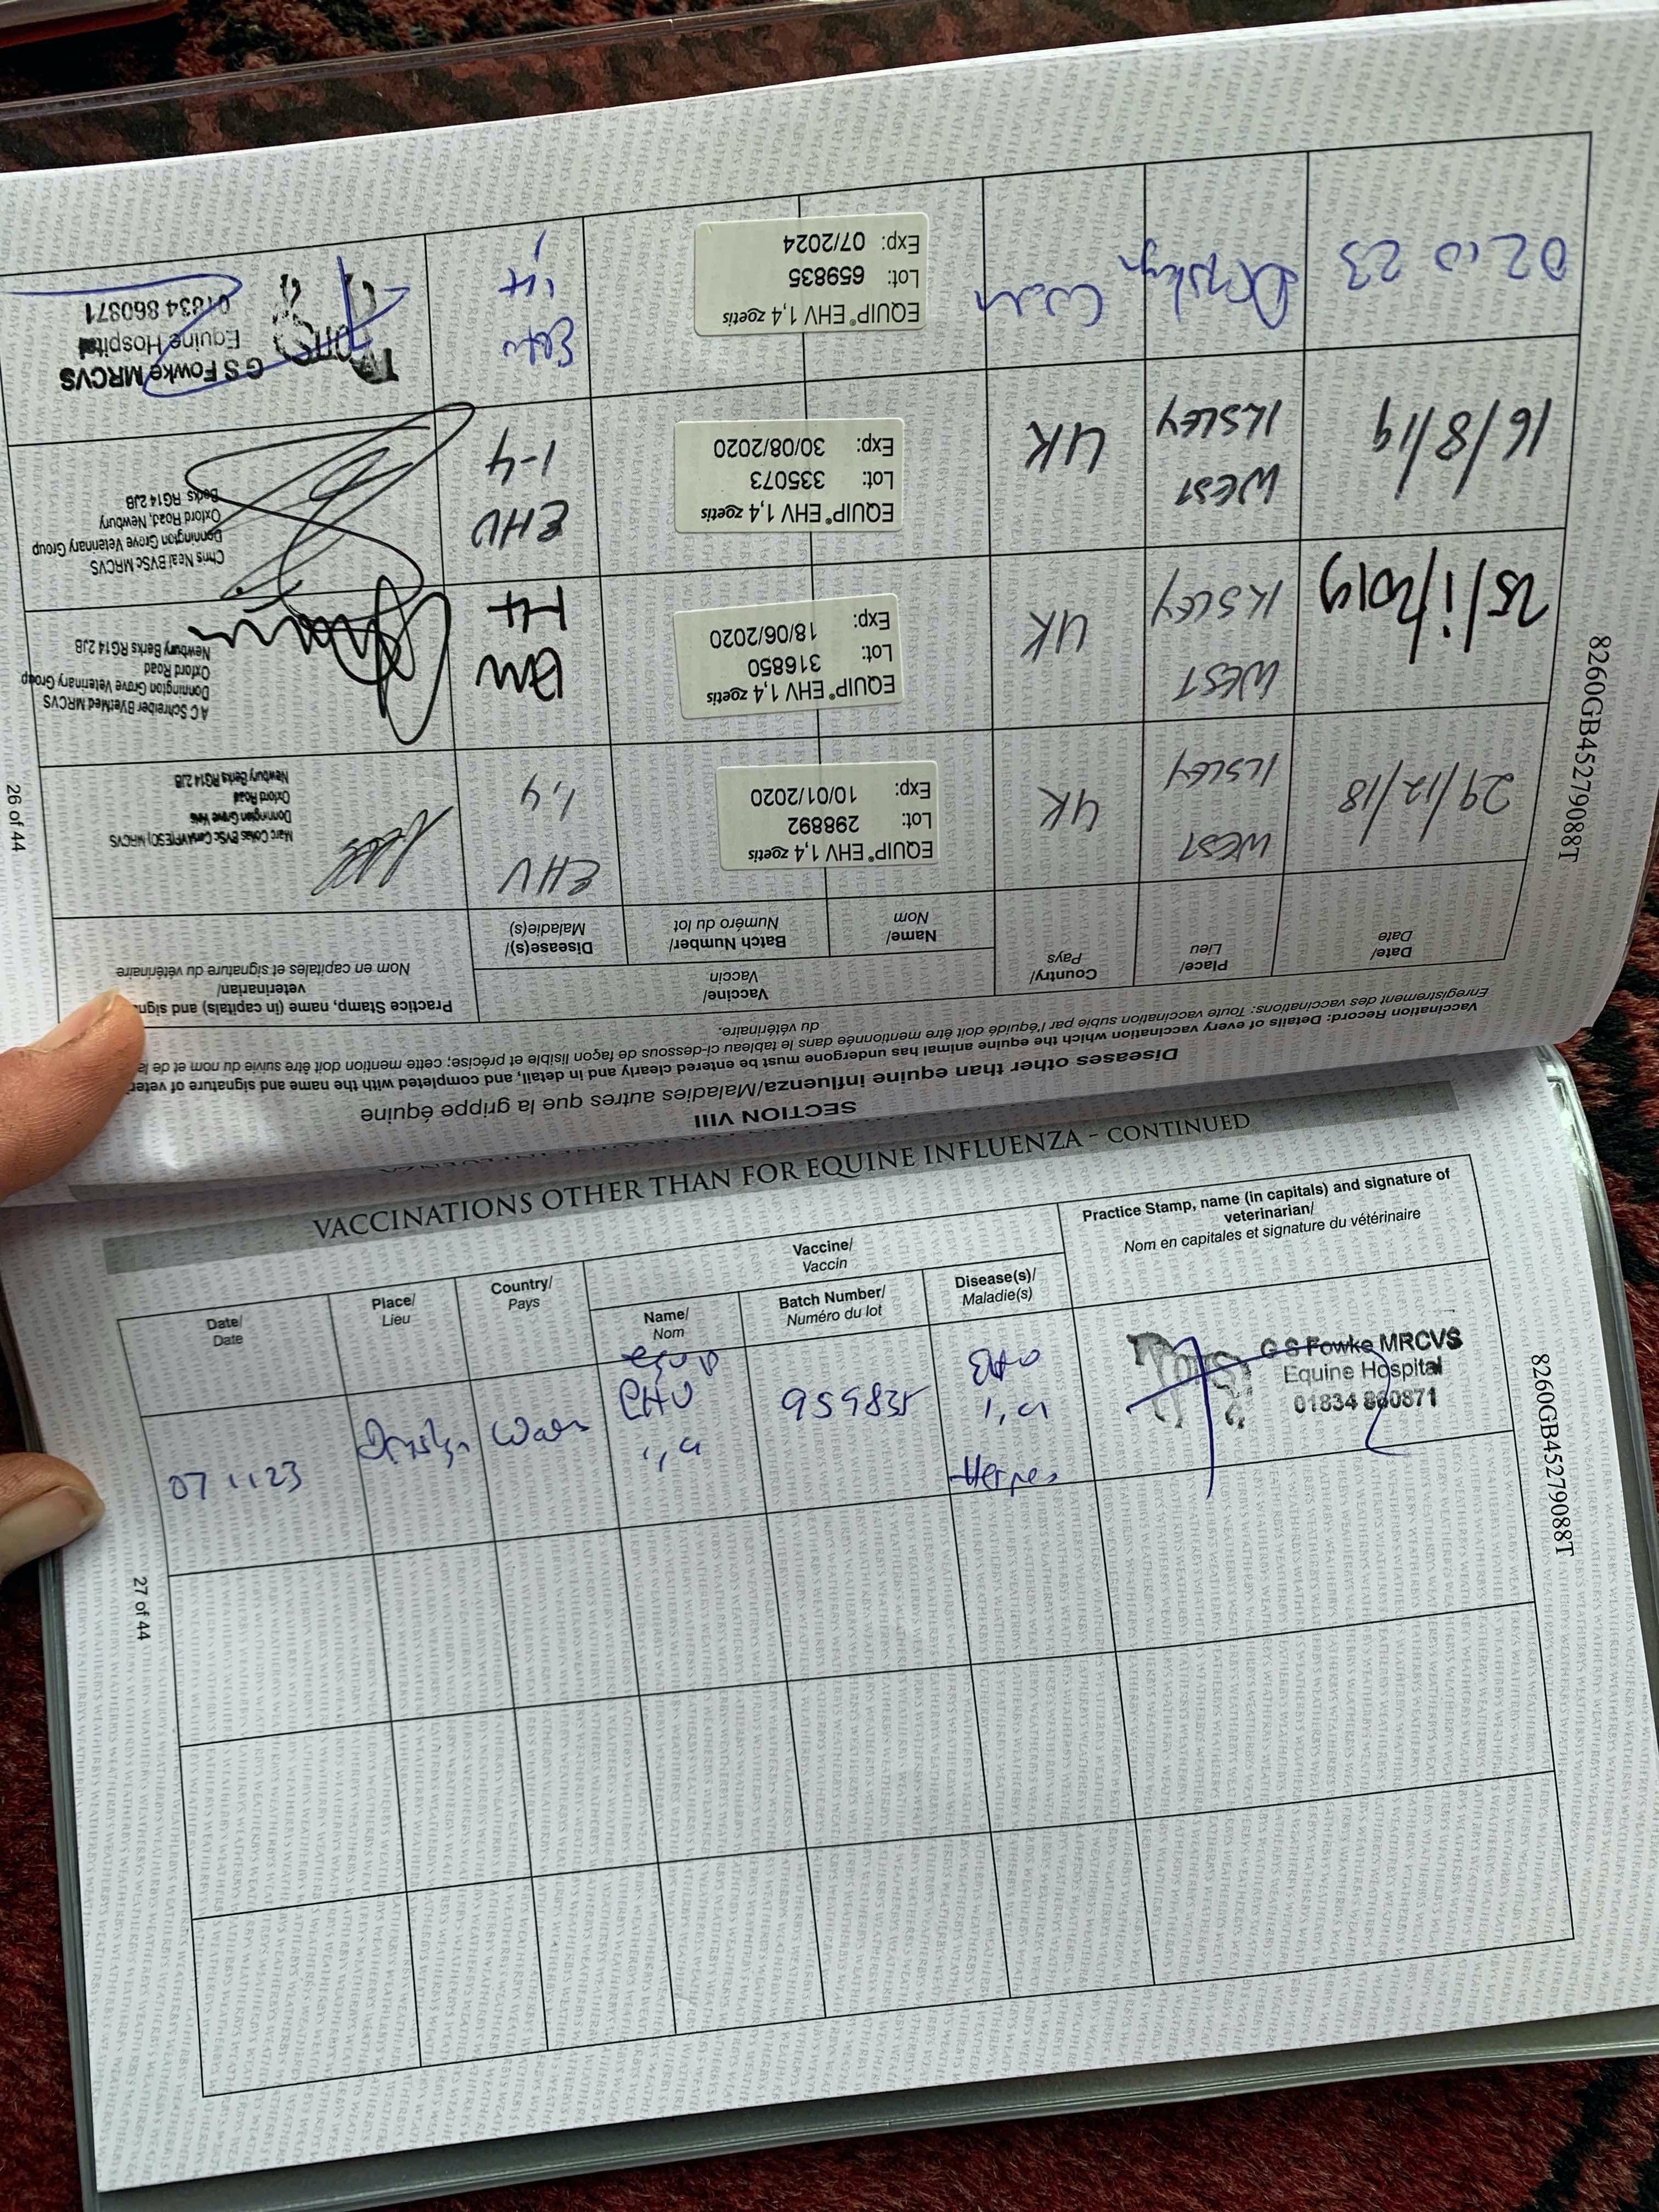 SECTION VIII
Diseases other than equine influenza/Maladies autres que la grippe équine
Vaccination Record: Details of every vaccination which the equine animal has undergone must be entered clearly and in detail, and completed with the name and signature of
Enregistrement des vaccinations: Toute vaccination subie par l'équidé doit être mentionnée dans le tableau ci-dessous de façon lisible et précise; cette mention doit être suivie du nom et de
du vétérinaire.
Date/
Date
Place/
Lieu
Country/
Pays
Vaccine/
Vaccin
Name/
Nom
Batch Number/
Numéro du lot
Disease(s)/
Maladie(s)
Practice Stamp, name (in capitals) and
veterinarian/
Nom en capitales et signature du vétérinaire
29/12/18
WEST
ILSLEY
UK
EQUIP® EHV 1,4 zoetis
Lot: 298892
Exp: 10/01/2020
EHV
1,4
Marc Colas BVSc CertAVP(ESO) MRCVS
Donnington Grove Vets
Oxford Road
Newbury Berks RG14 2JB
25/1/2019
WEST
ILSLEY
UK
EQUIP® EHV 1,4 zoetis
Lot: 316850
Exp: 18/06/2020
1-4
A C Schreiber BVetMed MRCVS
Donnington Grove Veterinary Group
Oxford Road
Newbury Berks RG14 2JB
16/8/19
WEST
ILSLEY
UK
EQUIP® EHV 1,4 zoetis
Lot: 335073
Exp: 30/08/2020
EHV
1-4
Chris Neal BVSc MRCVS
Donnington Grove Veterinary Group
Oxford Road, Newbury
Berks RG14 2JB
02 10 23
Wales
EQUIP® EHV 1,4 zoetis
Lot: 659835
Exp: 07/2024
EHV
1,4
G S Fowke MRCVS
Equine Hospital
01834 860871
26 of 44
8260GB45279088T
VACCINATIONS OTHER THAN FOR EQUINE INFLUENZA - CONTINUED
Date/
Date
Place/
Lieu
Country/
Pays
Vaccine/
Vaccin
Name/
Nom
Batch Number/
Numéro du lot
Disease(s)/
Maladie(s)
Practice Stamp, name (in capitals) and signature of
veterinarian/
Nom en capitales et signature du vétérinaire
07 11 23
Wales
equip
EHV
1,4
959835
EHV
1,4
Herpes
G S Fowke MRCVS
Equine Hospital
01834 860871
27 of 44
8260GB45279088T